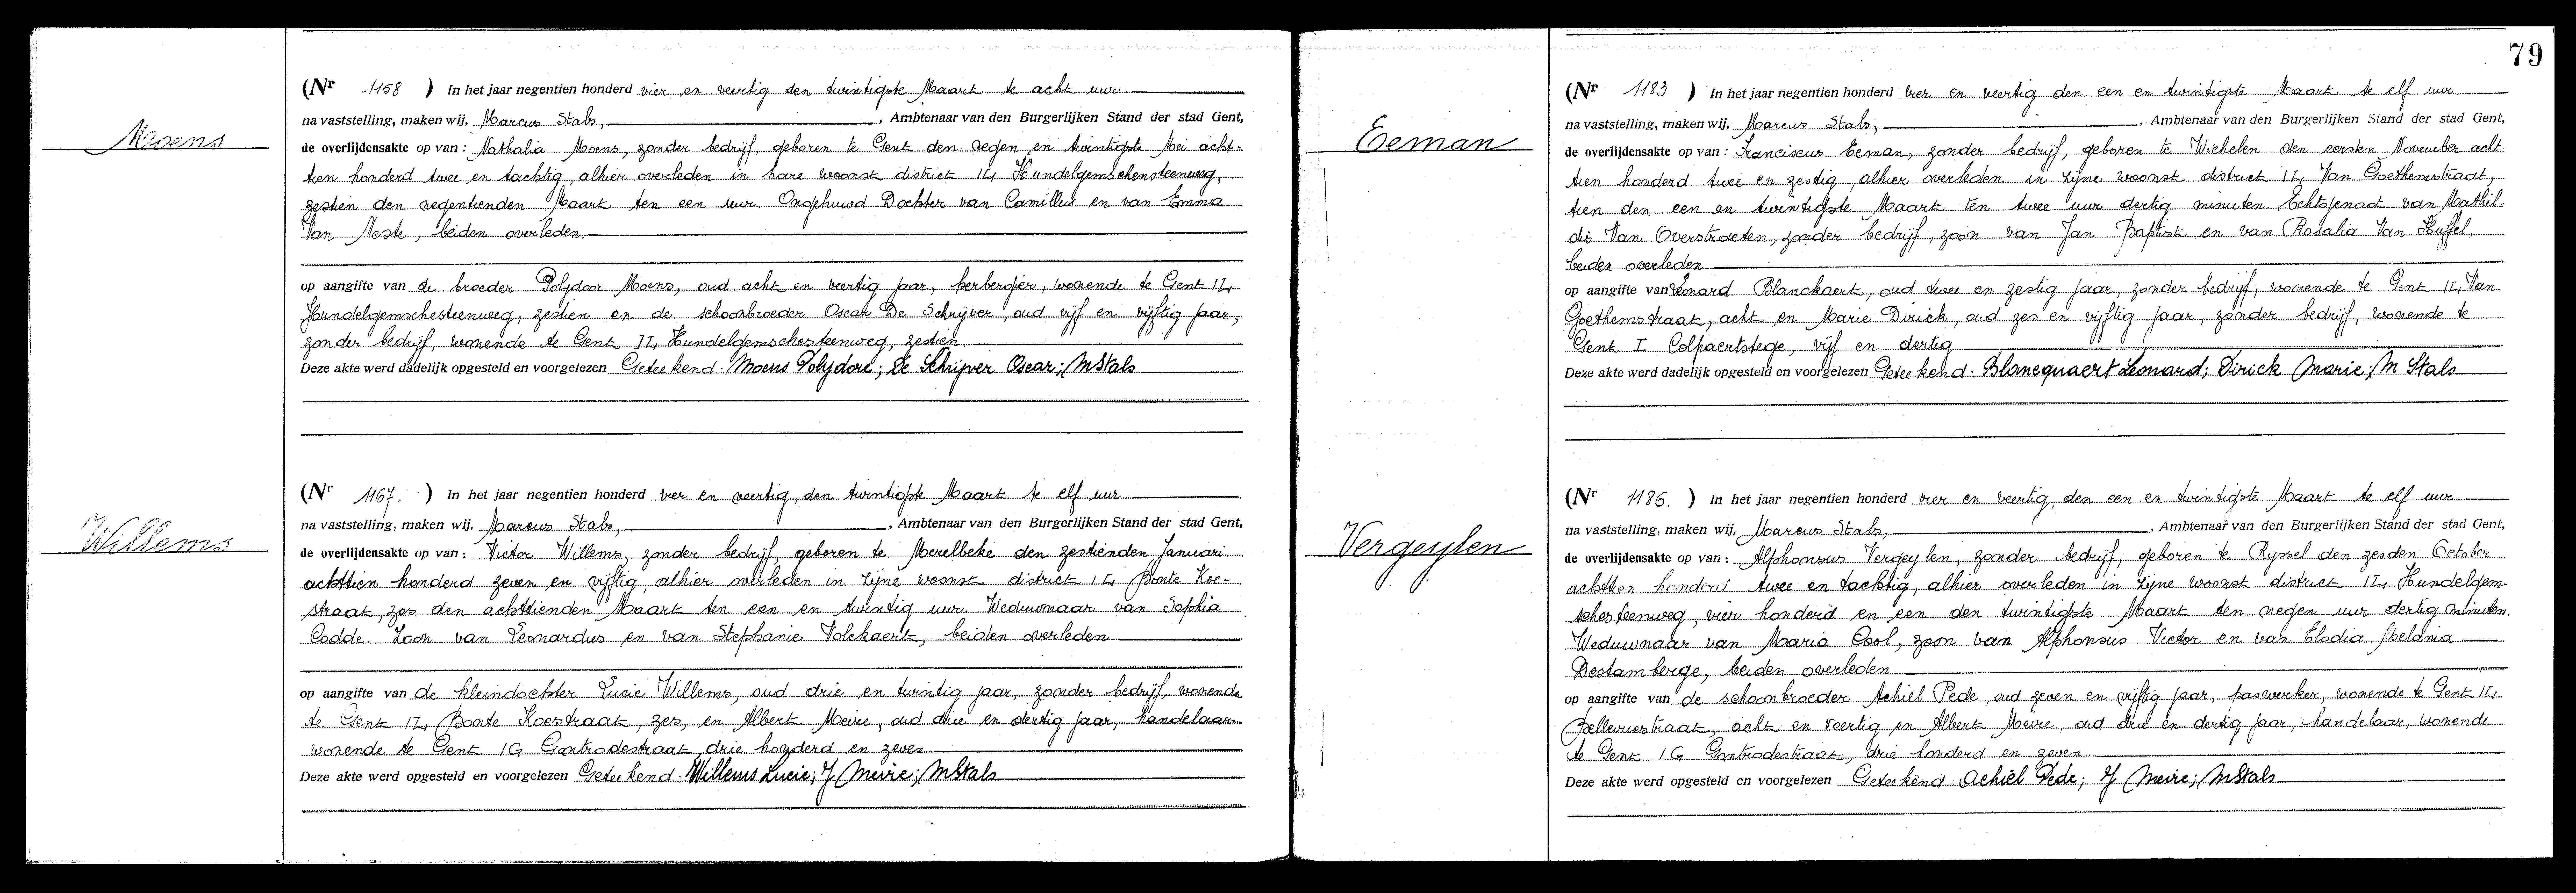 Moens
(Nr 1158 ) In het jaar negentien honderd vier en veertig den twintigste Maart te acht uur
na vaststelling, maken wij, Marcus Stals, , Ambtenaar van den Burgerlijken Stand der stad Gent,
de overlijdensakte op van : Nathalia Moens, zonder bedrijf, geboren te Gent den negen en twintigste Mei acht-
tien honderd twee en tachtig, alhier overleden in hare woonst district I4 Hundelgemschensteenweg,
zestien den negentienden Maart ten een uur. Ongehuwd Dochter van Camillus en van Emma
Van Neste, beiden overleden.
op aangifte van de broeder Polydoor Moens, oud acht en veertig jaar, herbergier, wonende te Gent I4
Hundelgemschesteenweg, zestien en de schoonbroeder Oscar De Schrijver, oud vijf en vijftig jaar,
zonder bedrijf, wonende te Gent I4 Hundelgemschesteenweg, zestien
Deze akte werd dadelijk opgesteld en voorgelezen Geteekend: Moens Polydore; De Schrijver Oscar; MStals
Willems
(Nr 1167. ) In het jaar negentien honderd vier en veertig, den twintigste Maart te elf uur
na vaststelling, maken wij, Marcus Stals, , Ambtenaar van den Burgerlijken Stand der stad Gent,
de overlijdensakte op van : Victor Willems, zonder bedrijf, geboren te Merelbeke den zestienden Januari
achttien honderd zeven en vijftig, alhier overleden in zijne woonst district I4 Bonte Koe-
straat, zes den achttienden Maart ten een en twintig uur. Weduwnaar van Sophia
Codde. Zoon van Leonardus en van Stephanie Volckaert, beiden overleden.
op aangifte van de kleindochter Lucie Willems, oud drie en twintig jaar, zonder bedrijf, wonende
te Gent I4 Bonte Koestraat, zes, en Albert Meire, oud drie en dertig jaar, handelaar
wonende te Gent IG Gontrodestraat, drie honderd en zeven.
Deze akte werd opgesteld en voorgelezen Geteekend: Willems Lucie; J Meire; MStals
79
Eeman
(Nr 1183 ) In het jaar negentien honderd vier en veertig den een en twintigste Maart te elf uur
na vaststelling, maken wij, Marcus Stals, , Ambtenaar van den Burgerlijken Stand der stad Gent,
de overlijdensakte op van : Franciscus Eeman, zonder bedrijf, geboren te Wichelen den eersten November acht
tien honderd twee en zestig, alhier overleden in zijne woonst district I4 Van Goethemstraat,
tien den een en twintigste Maart ten twee uur dertig minuten Echtgenoot van Mathil-
dis Van Overstraeten, zonder bedrijf, zoon van Jan Baptist en van Rosalia Van Huffel,
beiden overleden
op aangifte van Leonard Blanckaert, oud twee en zestig jaar, zonder bedrijf, wonende te Gent I4 Van
Goethemstraat, acht en Marie Dirick, oud zes en vijftig jaar, zonder bedrijf, wonende te
Gent I Colpaertstege, vijf en dertig
Deze akte werd dadelijk opgesteld en voorgelezen Geteekend: Blancquaert Leonard; Dirick Marie; M Stals
Vergeylen
(Nr 1186. ) In het jaar negentien honderd vier en veertig, den een en twintigste Maart te elf uur
na vaststelling, maken wij, Marcus Stals, , Ambtenaar van den Burgerlijken Stand der stad Gent,
de overlijdensakte op van : Alphonsus Vergeylen, zonder bedrijf, geboren te Ryssel den zesden October
achttien honderd twee en tachtig, alhier overleden in zijne woonst district I4 Hundelgem-
schesteenweg, vier honderd en een den twintigste Maart ten negen uur dertig minuten.
Weduwnaar van Maria Cool, zoon van Alphonsus Victor en van Elodia
Destamberge, beiden overleden
op aangifte van de schoonbroeder Achiel Pede, oud zeven en vijftig jaar, paswerker, wonende te Gent I4
Bellevuestraat, acht en veertig en Albert Meire, oud drie en dertig jaar, handelaar, wonende
te Gent IG Gontrodestraat, drie honderd en zeven
Deze akte werd opgesteld en voorgelezen Geteekend: Achiel Pede; J Meire; MStals